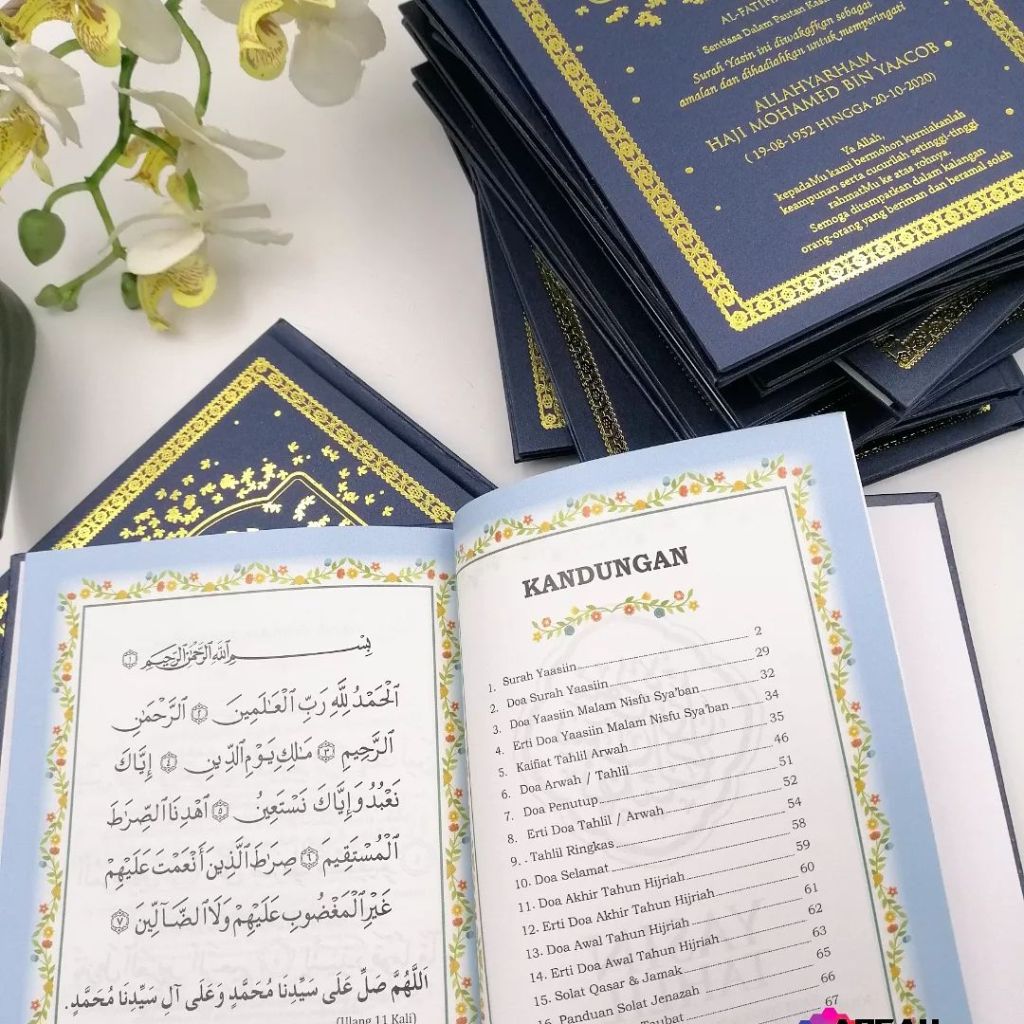 AL-FATIHA
Sentiasa Dalam Pautan Kasih
Surah Yasin ini diwakafkan sebagai
amalan dan dihadiahkan untuk memperingati
ALLAHYARHAM
HAJI MOHAMED BIN YAACOB
( 19-08-1952 HINGGA 20-10-2020)
Ya Allah,
kepadaMu kami bermohon kurniakanlah
keampunan serta cucurilah setinggi-tinggi
rahmatMu ke atas rohnya.
Semoga ditempatkan dalam kalangan
orang-orang yang beriman dan beramal soleh
بِسْمِ ٱللَّهِ ٱلرَّحْمَٰنِ ٱلرَّحِيمِ ١
ٱلْحَمْدُ لِلَّهِ رَبِّ ٱلْعَٰلَمِينَ ٢ ٱلرَّحْمَٰنِ
ٱلرَّحِيمِ ٣ مَٰلِكِ يَوْمِ ٱلدِّينِ ٤ إِيَّاكَ
نَعْبُدُ وَإِيَّاكَ نَسْتَعِينُ ٥ ٱهْدِنَا ٱلصِّرَٰطَ
ٱلْمُسْتَقِيمَ ٦ صِرَٰطَ ٱلَّذِينَ أَنْعَمْتَ عَلَيْهِمْ
غَيْرِ ٱلْمَغْضُوبِ عَلَيْهِمْ وَلَا ٱلضَّآلِّينَ ٧
اَللَّهُمَّ صَلِّ عَلَى سَيِّدِنَا مُحَمَّدٍ وَعَلَى آلِ سَيِّدِنَا مُحَمَّدٍ.
(Ulang 11 Kali)
KANDUNGAN
1. Surah Yaasiin 2
2. Doa Surah Yaasiin 29
3. Doa Yaasiin Malam Nisfu Sya'ban 32
4. Erti Doa Yaasiin Malam Nisfu Sya'ban 34
5. Kaifiat Tahlil Arwah 35
6. Doa Arwah / Tahlil 46
7. Doa Penutup 51
8. Erti Doa Tahlil / Arwah 52
9. . Tahlil Ringkas 54
10. Doa Selamat 58
11. Doa Akhir Tahun Hijriah 59
12. Erti Doa Akhir Tahun Hijriah 60
13. Doa Awal Tahun Hijriah 61
14. Erti Doa Awal Tahun Hijriah 62
15. Solat Qasar & Jamak 63
16. Panduan Solat Jenazah 65
Taubat 66
67